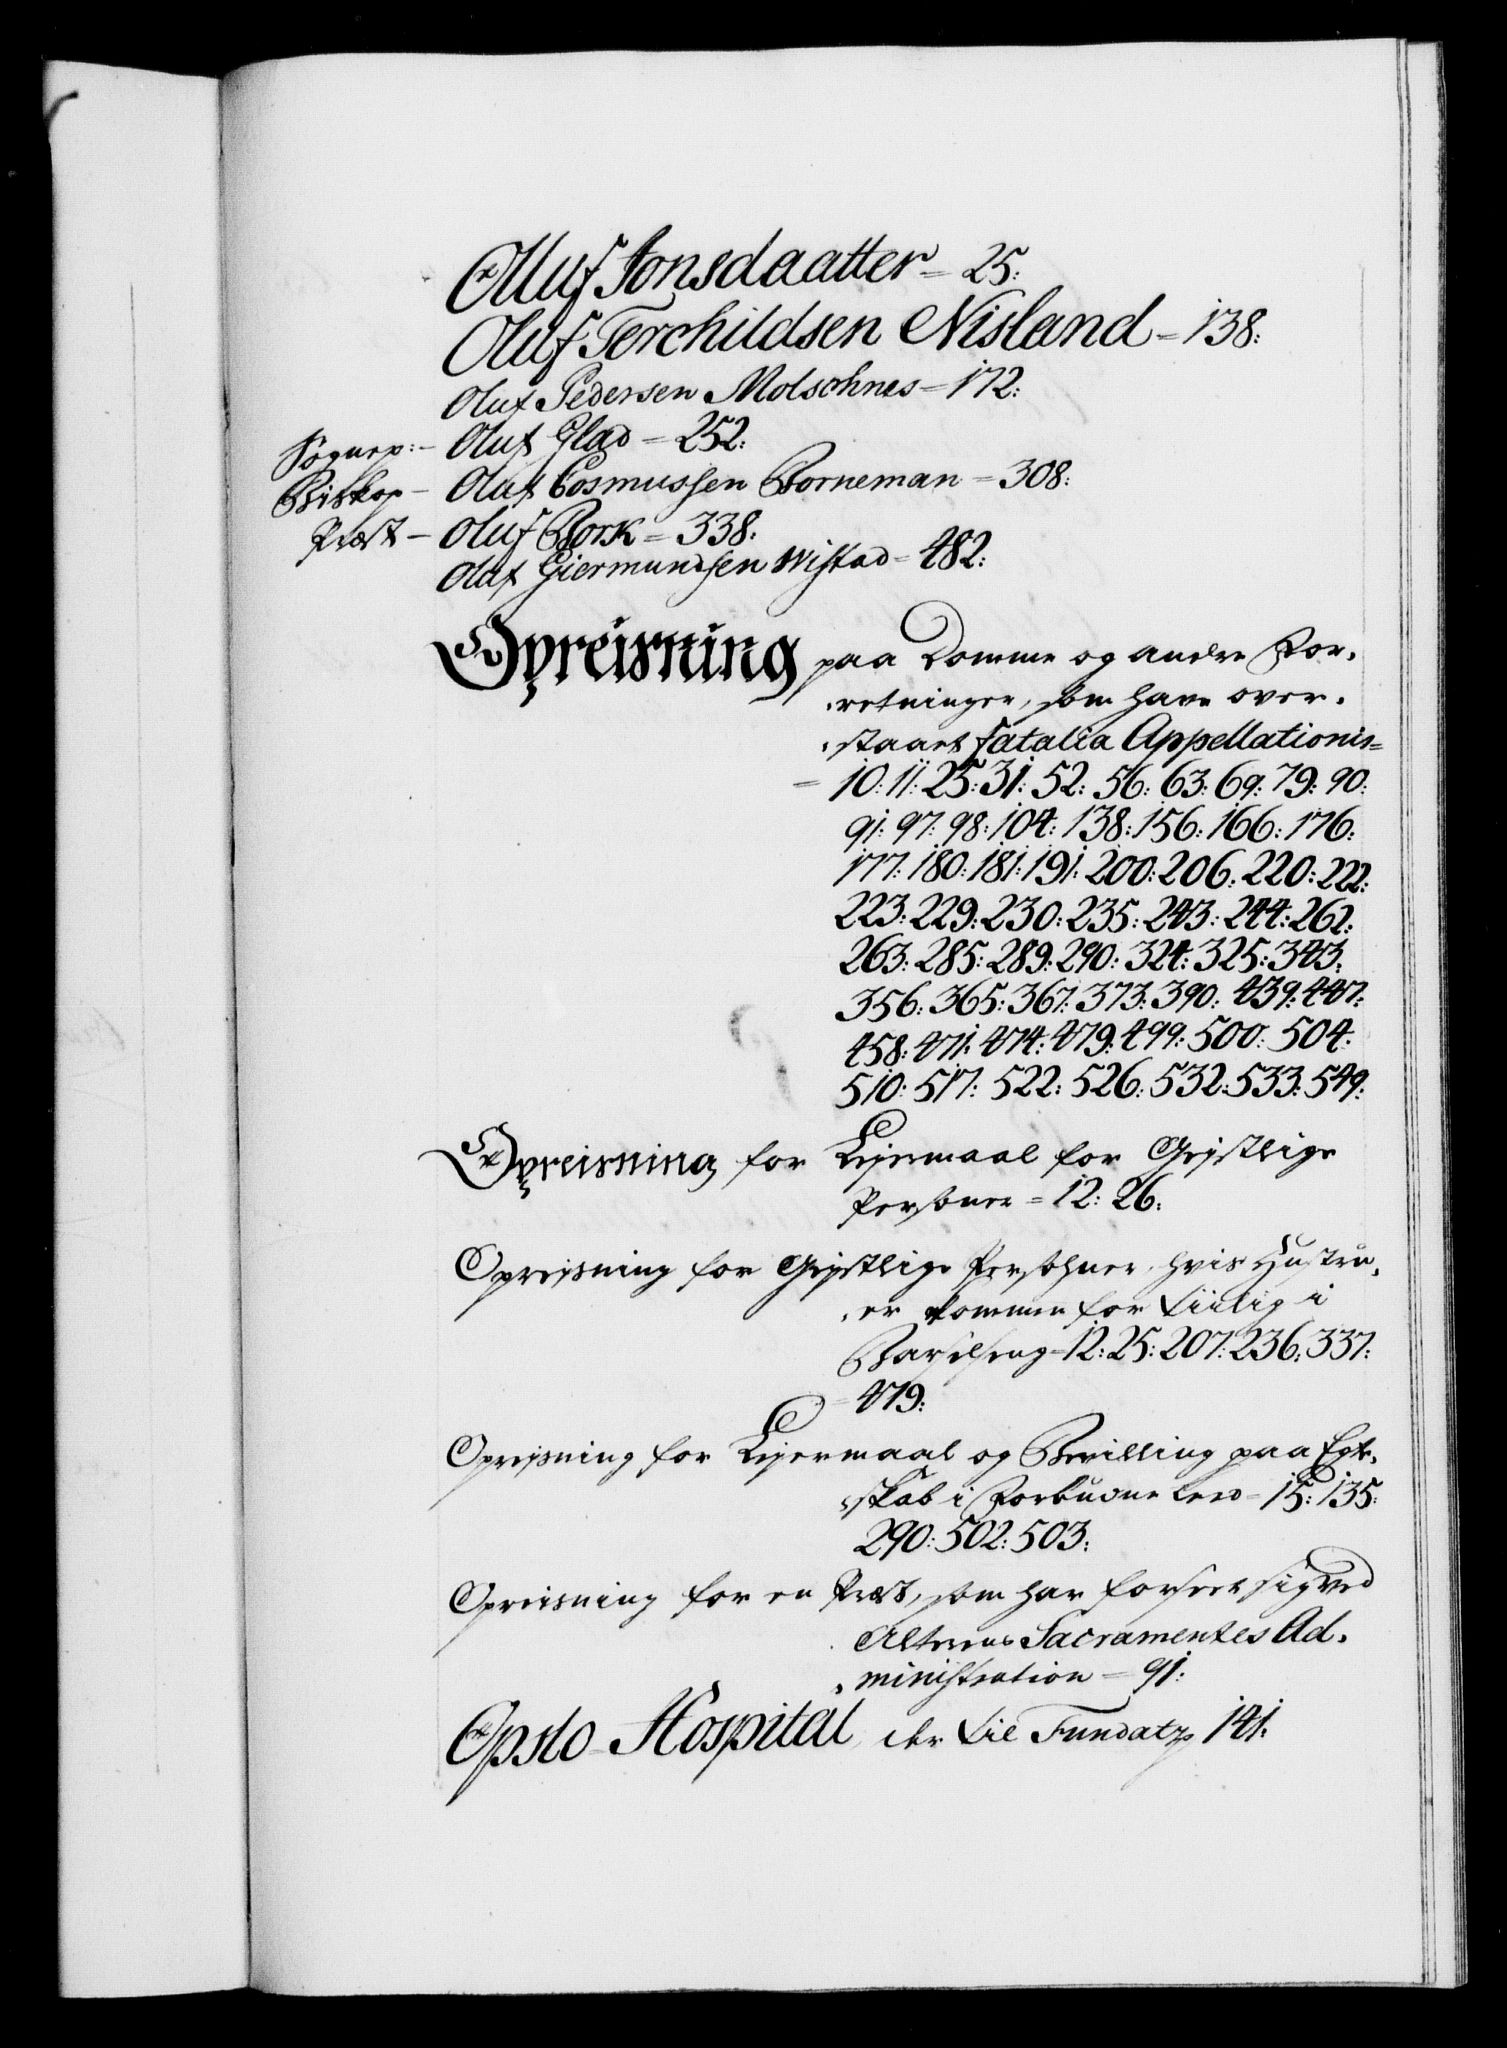 Oluf Jonsdaatter = 25:
Oluf Terchildsen Nisland = 138:
Oluf Pedersen Molschnes = 172:
Sognep: - Oluf Glad = 252:
Biskop - Oluf Cosmussen Borneman = 308:
Præst - Oluf Bork = 338:
Oluf Giermundsen Wistad = 482:
Opreisning paa Domme og andre For-
-retninger, som have over-
-staaet Fatalia Appellationis =
= 10: 11: 25: 31: 52: 56: 63: 69: 79: 90:
91: 97: 98: 104: 138: 156: 166: 176:
177: 180: 181: 191: 200: 206: 220: 222:
223: 229: 230: 235: 243: 244: 262:
263: 285: 289: 290: 324: 325: 343:
356: 365: 367: 373: 390: 439: 447:
458: 471: 474: 479: 499: 500: 504:
510: 517: 522: 526: 532: 533: 549:
Opreisning for Lejermaal for Gejstlige
Personer = 12: 26:
Oprejsning for Gejstlige Persohner, hvis Hustru-
-er komme for tiilig i
Barselseng = 12: 25: 207: 236: 337:
= 479:
Oprejsning for Lejermaal og Bevilling paa Egte-
-skab i Forbudne Leed = 15: 135:
290: 502: 503:
Opreisning for en Præst, som har forseet sig ved
Alterens Sacramentes Ad-
-ministration = 91:
Opslo Hospital, der til Fundatz 141: